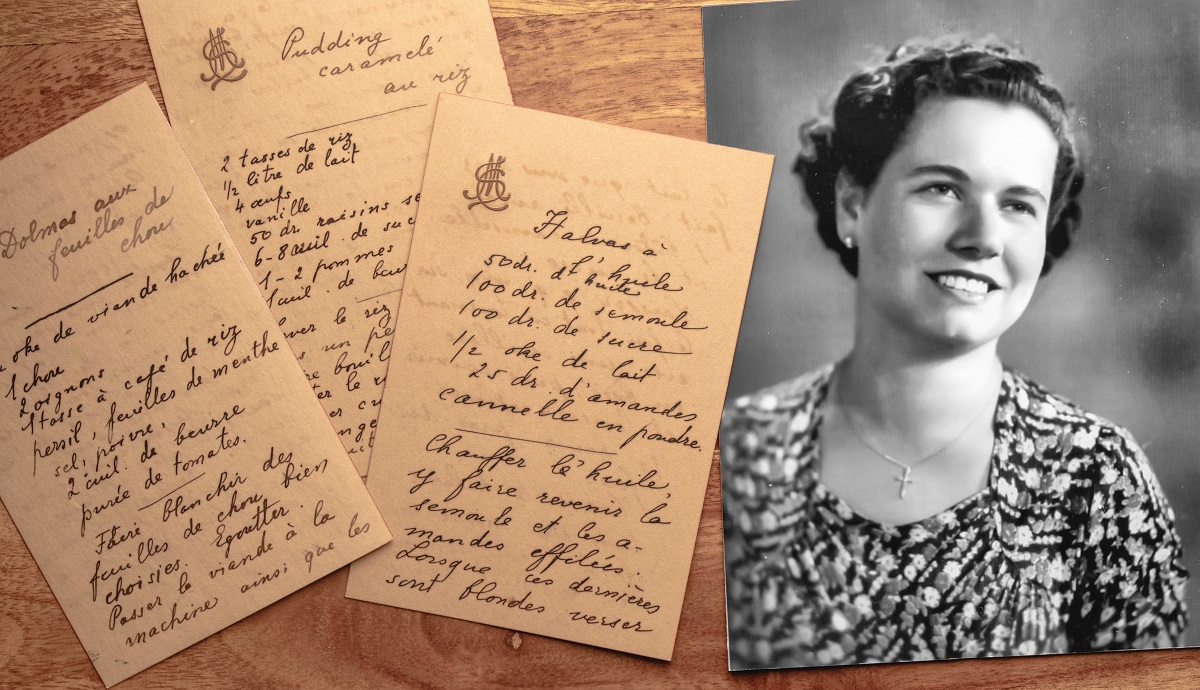 Dolmas aux
feuilles de
choux
oke de viande hachée
1 chou
2 oignons
1 tasse à café de riz
persil, feuilles de menthe
sel, poivre,
2 cuil. de beurre
purée de tomates.
Faire blanchir des
feuilles de chou bien
choisies. Egoutter.
Passer la viande à la
machine ainsi que les
Pudding
caramelé
au riz
2 tasses de riz
1/2 litre de lait
4 œufs
vanille
50 dr. raisins
6-8 cuil. de
1-2 pommes
1 cuil. de
le riz
un
le
Halvas à
l'huile
50 dr. d'huile
100 dr. de semoule
100 dr. de sucre
1/2 oke de lait
25 dr. d'amandes
cannelle en poudre.
Chauffer l'huile,
y faire revenir la
semoule et les a-
mandes effilées.
Lorsque ces dernières
sont blondes verser